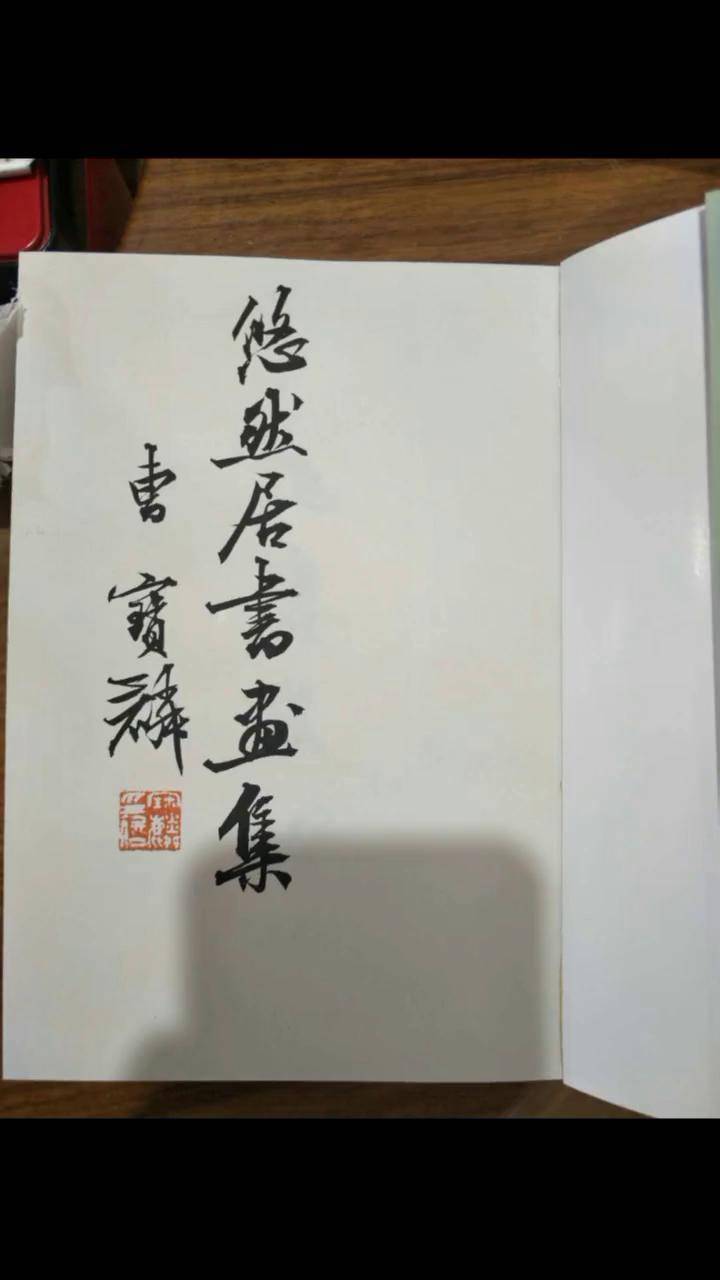 悠然居書畫集
曹寶麟